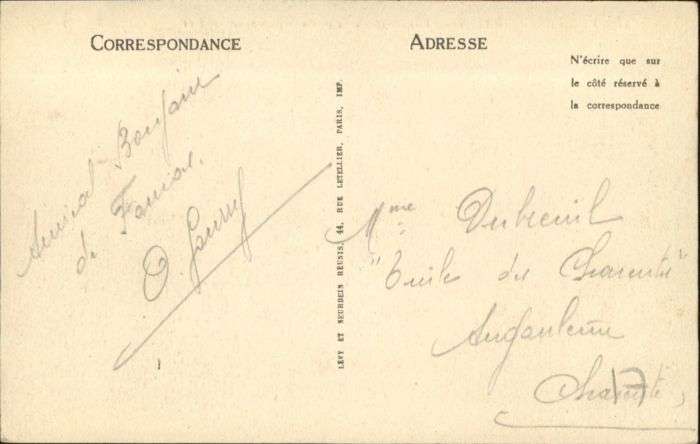 CORRESPONDANCE
ADRESSE
N'écrire que sur
le côté réservé à
la correspondance
Amical Bonjour
de
LÉVY ET NEURDEIN RÉUNIS, 44, RUE LETELLIER, PARIS, IMP.
Mme Dubreuil
des Charente"
Angoulême
Charente
17